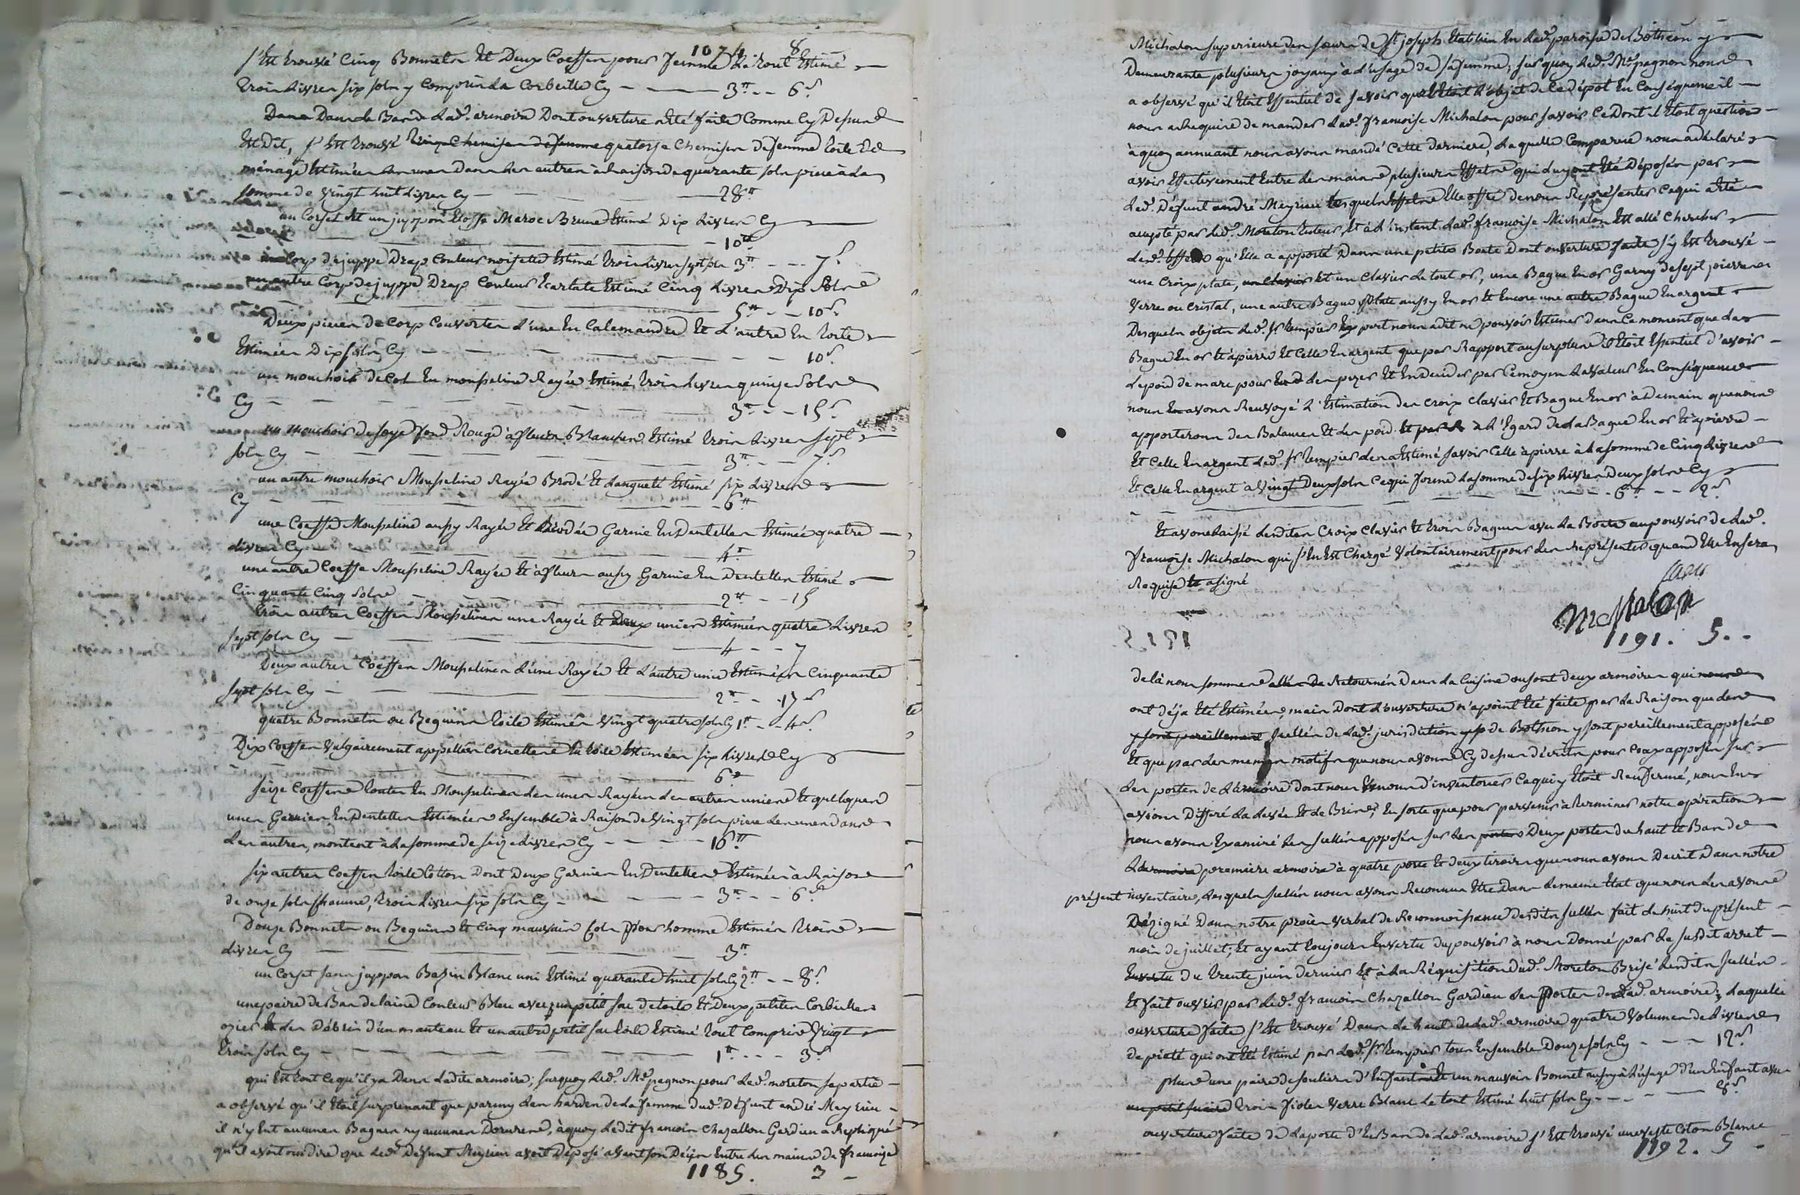 1074. 8
s'Est trouvé Cinq Bonnets Et Deux Coeffes pour femme Le tout Estimé
trois Livres six sols y Compris La Corbeille Cy — — 3tt - - 6s
Dans Dans le Bas de Lade. armoire Dont ouverture a été faite Comme Cy Dessus
Est Dit, s'Est trouvé quatorze Chemises de femme toile de
ménage Estimées Les unes Dans Les autres à Raison de quarante sols piece a La
somme de vingt huit Livres Cy — 28tt
un Corset Et un juppon Etoffe Maroc Brune Estimé Dix Livres Cy
— 10tt
un Corp de juppe Drap Couleur noisette Estimé trois Livres sept sols 3tt - - - 7s
un autre Corp de juppe Drap Couleur Ecarlate Estimé Cinq Livres Dix sols
5tt - - 10s
Deux pieces de Corp Couvertes L'une En Calemandre Et L'autre En toile
Estimées Dix sols Cy — 10s
un mouchoir de Col En mousseline Rayée Estimé trois Livres quinze sols
Cy — 3tt - - 15s
un mouchoir de soye fond Rouge à fleurs Blanches Estimé trois Livres sept
sols Cy — 3tt - - 7s
un autre mouchoir Mousseline Rayée Brodé Et Langueté Estimé six Livres
Cy — 6tt
une Coeffe Mousseline aussy Rayée Et Brodée Garnie En Dentelles Estimée quatre
Livres Cy — 4tt
une autre Coeffe Mousseline Rayée Et à fleurs aussy Garnie En Dentelles Estimé
Cinquante Cinq sols — 2tt - - 15
trois autres Coeffes Mousselines une Rayée Et Deux unies Estimées quatre Livres
sept sols Cy — 4 - - 7
Deux autres Coeffes Mousselines L'une Rayée Et L'autre unie Estimées Cinquante
sept sols Cy — 2tt - - 17s
quatre Bonnets ou Beguins toile Estimés vingt quatre sols Cy 1tt - - 4s
Dix Coeffes vulgairement appellées Cornettes En toile Estimées six Livres Cy
— 6tt
seize Coeffes toutes En Mousselines Les unes Rayées Les autres unies Et quelques
unes Garnies En Dentelles Estimées Ensemble à Raison de vingt sols piece Les unes Dans
Les autres, montent à La somme de seize Livres Cy — 16tt
six autres Coeffes toile Cotton Dont Deux Garnies En Dentelles Estimées à Raison
de onze sols chacune, trois Livres six sols Cy — 3tt - - 6s
Douze Bonnets ou Beguins Et Cinq mauvais Cols Pour homme Estimés trois
Livres Cy — 3tt
un Corset sans juppon Bazin Blanc uni Estimé quarante huit sols Cy 2tt - - 8s
une paire de Bas de Laine Couleur Bleu avec un petit sac de toile Et Deux petites Corbeilles
ozier Et Les Débris d'un manteau Et un autre petit sac toile Estimé tout Compris vingt
trois sols Cy — 1tt - - - 3s
qui Est tout Ce qu'il y a Dans Ladite armoire; surquoy Led. Me. pagnon pour Led. moreton sa partie
a observé qu'il Etoit surprenant que parmy Les hardes de La femme dud. Défunt andré Meyrieu
il n'y Eut aucunes Bagues ny aucunes Dorures, à quoy Ledit francois Chazallon Gardien a Repliqué
qu'il avoit oui dire que Led. Défunt Meyrieu avoit Déposé avant son Décès Entre Les mains de francoise
1185. 3 —
Michalon superieure des sœurs de St. joseph Etablies En Lade. paroisse de Bothéon y
Demeurante plusieurs joyaux à L'usage de sa femme, sur quoy Led. Me. pagnon nous
a observé qu'il Etoit Essentiel de savoir quel Etoit L'objet de Ce dépot En Conséquence il
nous a Requis de mander Lade. francoise Michalon pour savoir Ce Dont il Etoit question
à quoy annuant nous avons mandé Cette Derniere, Laquelle Comparue nous a déclaré
avoir Effectivement Entre Les mains plusieurs Effets qui luy ont Eté Déposés par
Led. Défunt andré Meyrieu Lesquels Effets Elle offre de nous Représenter Ce qui a été
accepté par Led. Moreton tuteur, Et à L'instant Lade. francoise Michalon Est allé Chercher
Lesd. Effets qu'Elle a apporté Dans une petite Boete Dont ouverture faite s'y Est trouvé
une Croix plate, Et un Clavier Le tout or, une Bague En or Garny de sept pierres
verre ou Cristal, une autre Bague plate aussy En or Et Encore une autre Bague En argent
Desquels objets Led. Sr. tempier Expert nous a dit ne pouvoir Estimer Dans Ce moment que La
Bague En or Et à pierre Et Celle En argent que par Rapport au surplus il Etoit Essentiel d'avoir
Le poid de marc pour Les pezer Et En Décider par Ce moyen La valeur En Conséquence
nous avons Renvoyé L'Estimation des Croix Clavier Et Bague En or à demain que nous
apporterons Des Balances Et des poid à L'Egard de La Bague En or Et à pierre
Et Celle En argent Led. Sr. tempier Les a Estimé savoir Celle à pierre à La somme de Cinq Livres
Et Celle En argent à vingt Deux sols Ce qui forme La somme de six Livres Deux sols Cy
— 6tt - - 2s
Et avons Laissé Lesdites Croix Clavier Et trois Bagues avec La Boete au pouvoir de Lade.
francoise Michalon qui s'En Est Chargé volontairement pour Les Représenter quand Elle En sera
Requise Et a signé
Michalon
1191. 5 - -
de là nous sommes Retournés Dans La Cuisine ou sont deux armoires qui
ont déja Eté Estimées, mais Dont L'ouverture n'a point Eté faite par La Raison que Les
scellés de Lad. jurisdiction de Bothéon y sont pareillement apposés
Et que par Les memes motifs que nous avons Cy dessus décrits pour Ceax apposés sur
Les portes de L'armoire Dont nous venons d'inventorier Ce qui y Etoit Renfermé, nous En
avions Differé La Levée Et Le Bris; En sorte que pour parvenir à terminer notre opération
nous avons Examiné Les scellés apposés sur Les Deux portes du haut Et Bas de
La premiere armoire à quatre porte Et deux tiroirs que nous avons Décrit Dans notre
présent inventaire, Lesquels scellés nous avons Reconnus Etre Dans Le meme Etat que nous Les avons
Désigné Dans notre procès verbal de Reconnoissance Desdits scellés fait Le huit du présent
mois de juillet, Et ayant toujours En vertu du pouvoir à nous Donné par Le susdit arret
du trente juin dernier Et à La Réquisition dud. Moreton Brisé Lesdits scellés
Et fait ouvrir par Led. francois Chazallon Gardien Les Portes de Lad. armoire, Laquelle
ouverture faite s'Est trouvé Dans Le haut de Lad. armoire quatre volumes de Livres
de piété qui ont Eté Estimé par Led. Sr. tempier tous Ensemble Douze sols Cy — 12s
plus une paire de souliers d'Enfant Et un mauvais Bonnet aussy à L'usage d'un Enfant avec
trois fioles verre Blanc Le tout Estimé huit sols Cy — 8s
ouverture faite de La porte d'En Bas de Lad. armoire s'Est trouvé une veste Coton Blanc
1192. 5 —